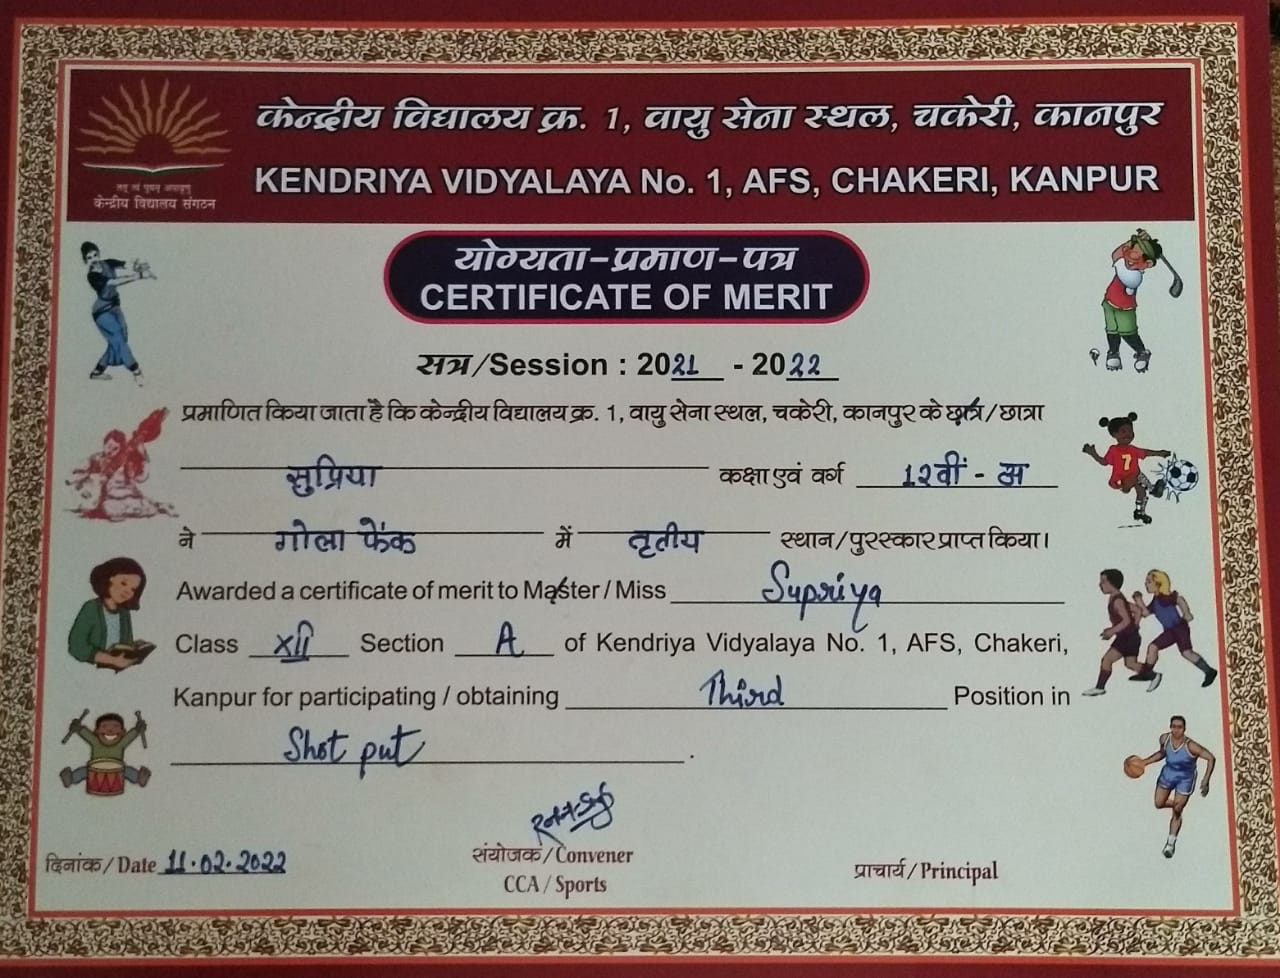 केन्द्रीय विद्यालय क्र. 1, वायु सेना स्थल, चकेरी, कानपुर
KENDRIYA VIDYALAYA No. 1, AFS, CHAKERI, KANPUR
तत् त्वं पूषन् अपावृणु
केन्द्रीय विद्यालय संगठन
योग्यता-प्रमाण-पत्र
CERTIFICATE OF MERIT
सत्र/Session : 2021 - 2022
प्रमाणित किया जाता है कि केन्द्रीय विद्यालय क्र. 1, वायु सेना स्थल, चकेरी, कानपुर के छात्र/छात्रा
सुप्रिया कक्षा एवं वर्ग 12वीं - अ
ने गोला फेंक में तृतीय स्थान/पुरस्कार प्राप्त किया।
Awarded a certificate of merit to Master / Miss Supriya
Class XII Section A of Kendriya Vidyalaya No. 1, AFS, Chakeri,
Kanpur for participating / obtaining Third Position in
Shot put.
दिनांक/Date 11.02.2022
संयोजक/Convener
CCA/Sports
प्राचार्य/Principal
7